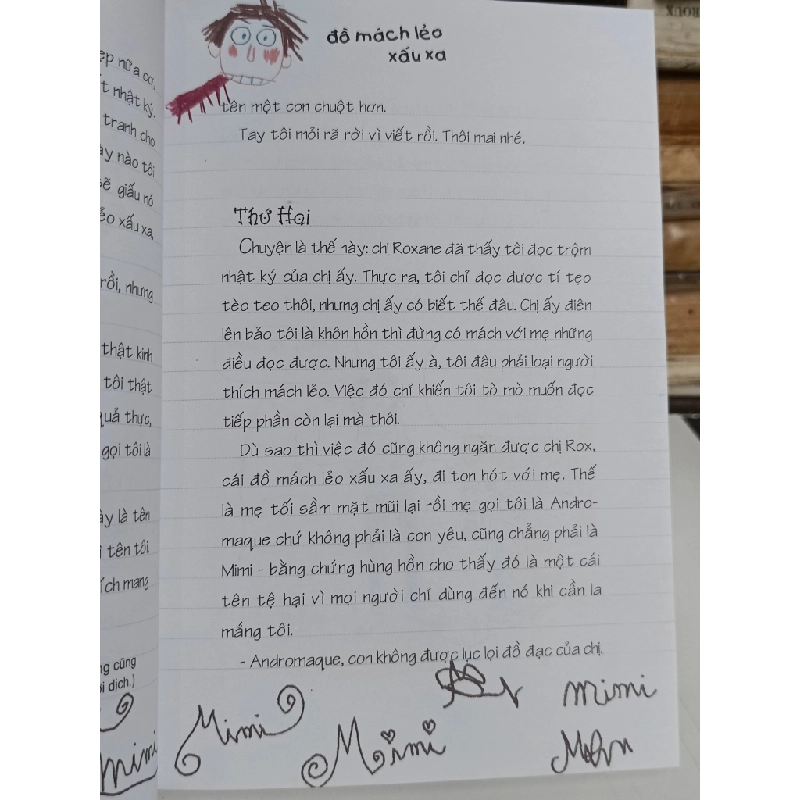 ẹp nữa cơ,
t nhật ký.
tranh cho
ày nào tôi
sẽ giấu nó
ẻo xấu xa,
rồi, nhưng
thật kinh
tôi thật
quả thực,
gọi tôi là
ày là tên
i tên tôi
ích mang
ng cũng
i dịch!
mimi
đồ mách lẻo
xấu xa
tên một con chuột hơn.
Tay tôi mỏi rã rời vì viết rồi. Thôi mai nhé.
Thứ Hai
Chuyện là thế này: chị Roxane đã thấy tôi đọc trộm
nhật ký của chị ấy. Thực ra, tôi chỉ đọc được tí tẹo
tèo teo thôi, nhưng chị ấy có biết thế đâu. Chị ấy điên
lên bảo tôi là khôn hồn thì đừng có mách với mẹ những
điều đọc được. Nhưng tôi ấy à, tôi đâu phải loại người
thích mách lẻo. Việc đó chỉ khiến tôi tò mò muốn đọc
tiếp phần còn lại mà thôi.
Dù sao thì việc đó cũng không ngăn được chị Rox,
cái đồ mách ẻo xấu xa ấy, đi ton hót với mẹ. Thế
là mẹ tối sầm mặt mũi lại rồi mẹ gọi tôi là Andro-
maque chứ không phải là con yêu, cũng chẳng phải là
Mimi - bằng chứng hùng hồn cho thấy đó là một cái
tên tệ hại vì mọi người chỉ dùng đến nó khi cần la
mắng tôi.
- Andromaque, con không được lục lọi đồ đạc của chị.
Mimi
Mimi
mimi